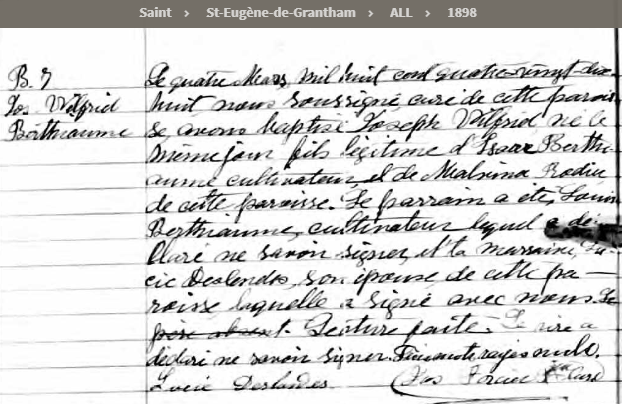 Saint › St-Eugène-de-Grantham › ALL › 1898
B. 7
Jos Wilfrid
Berthiaume
Le quatre Mars mil huit cent quatre-vingt-dix-
huit nous soussigné curé de cette parois-
se avons baptisé Joseph Wilfrid né le
même jour fils légitime d'Isaac Berthi-
aume cultivateur et de Malvina Rodier
de cette paroisse. Le parrain a été Louis
Berthiaume, cultivateur lequel a dé-
claré ne savoir signer, et la marraine, Lu-
cie Deslandes, son épouse, de cette pa-
roisse laquelle a signé avec nous. Le
père absent. Lecture faite. Le père a
déclaré ne savoir signer. mots rayés nuls.
Lucie Deslandes Jos Ptre Curé